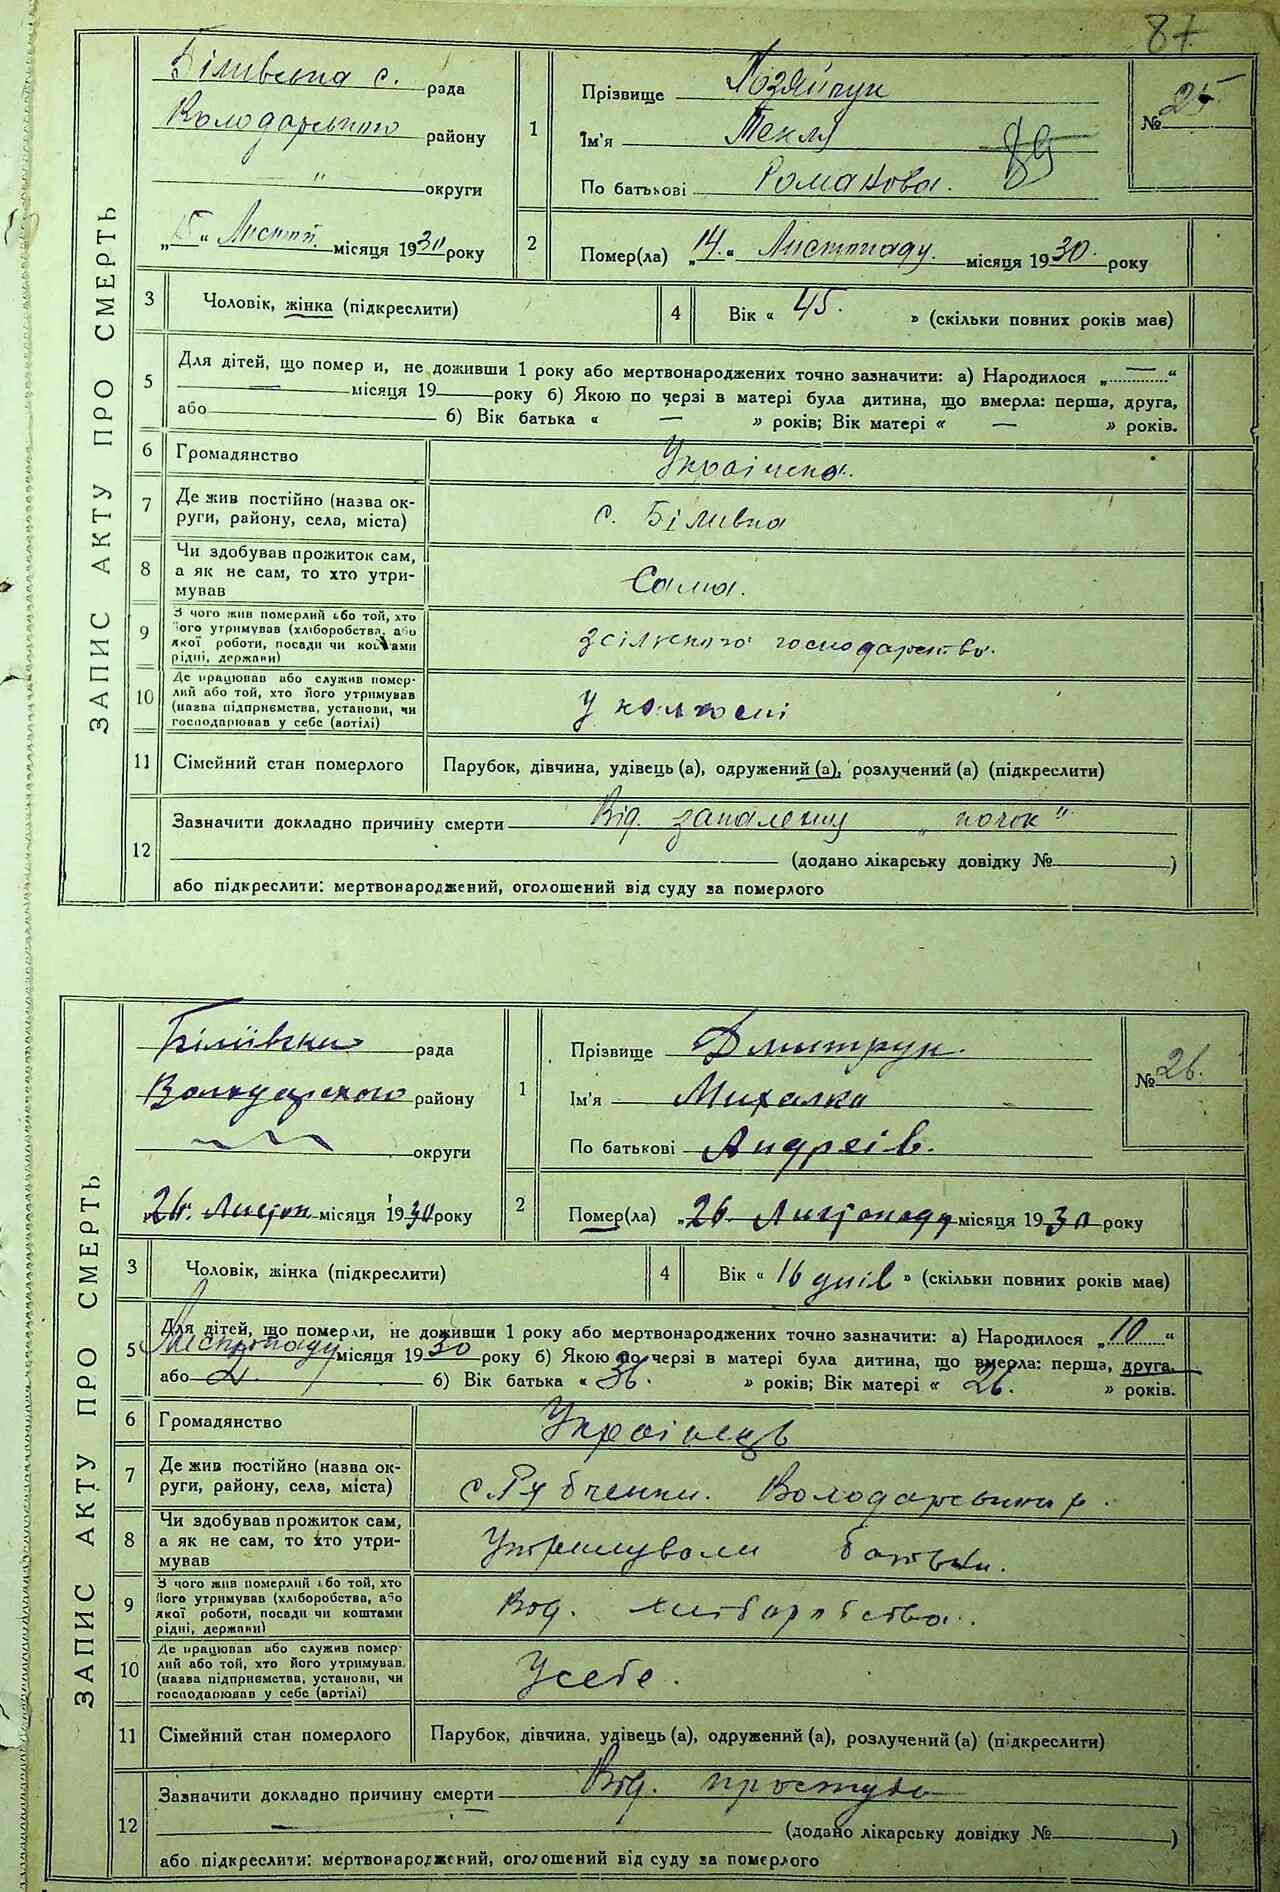 87
ЗАПИС АКТУ ПРО СМЕРТЬ
Біливська с. рада
Володарського району
„ округи
„15“ Листоп. місяця 1930 року
1
Прізвище
Ім'я Текля
По батькові Романова.
85
№ 25
2
Помер(ла) „14.“ Листопаду. місяця 1930. року
3 Чоловік, жінка (підкреслити)
4 Вік « 45. » (скільки повних років має)
5 Для дітей, що помер и, не доживши 1 року або мертвонароджених точно зазначити: а) Народилося „— “
— місяця 19 року б) Якою по черзі в матері була дитина, що вмерла: перша, друга,
або б) Вік батька « — » років; Вік матері « — » років.
6 Громадянство Українка.
7 Де жив постійно (назва ок-
руги, району, села, міста) с. Біливка
8 Чи здобував прожиток сам,
а як не сам, то хто утри-
мував Сама.
9 З чого жив померлий або той, хто
його утримував (хліборобства, або
якої роботи, посади чи коштами
рідні, держави) зсільского господарства.
10 Де працював або служив помер-
лий або той, хто його утримував
(назва підприємства, установи, чи
господарював у себе (артілі) У колхоспі
11 Сімейний стан померлого Парубок, дівчина, удівець (а), одружений (а), розлучений (а) (підкреслити)
12 Зазначити докладно причину смерти Від. запаления „почок“
(додано лікарську довідку № )
або підкреслити: мертвонароджений, оголошений від суду за померлого
ЗАПИС АКТУ ПРО СМЕРТЬ
Біліївська рада
Володарського району
округи
„26. Листоп місяця 1930 року
1
Прізвище Дмитрук.
Ім'я Михалка
По батькові Андреів.
№ 26.
2
Помер(ла) „26. Листопаду місяця 1930 року
3 Чоловік, жінка (підкреслити)
4 Вік « 16 днів » (скільки повних років має)
5 Для дітей, що померли, не доживши 1 року або мертвонароджених точно зазначити: а) Народилося „10“
Листопаду місяця 1930 року б) Якою по черзі в матері була дитина, що вмерла: перша, друга,
або 2. б) Вік батька « 36. » років; Вік матері « 26. » років.
6 Громадянство Українець
7 Де жив постійно (назва ок-
руги, району, села, міста) с. Рубченки. Володарський р.
8 Чи здобував прожиток сам,
а як не сам, то хто утри-
мував Утримували батьки.
9 З чого жив померлий або той, хто
його утримував (хліборобства, або
якої роботи, посади чи коштами
рідні, держави) Вод. хліборобства.
10 Де працював або служив помер-
лий або той, хто його утримував.
(назва підприємства, установи, чи
господарював у себе (артілі) У себе.
11 Сімейний стан померлого Парубок, дівчина, удівець (а), одружений (а), розлучений (а) (підкреслити)
12 Зазначити докладно причину смерти Від. простуди
(додано лікарську довідку № )
або підкреслити: мертвонароджений, оголошений від суду за померлого